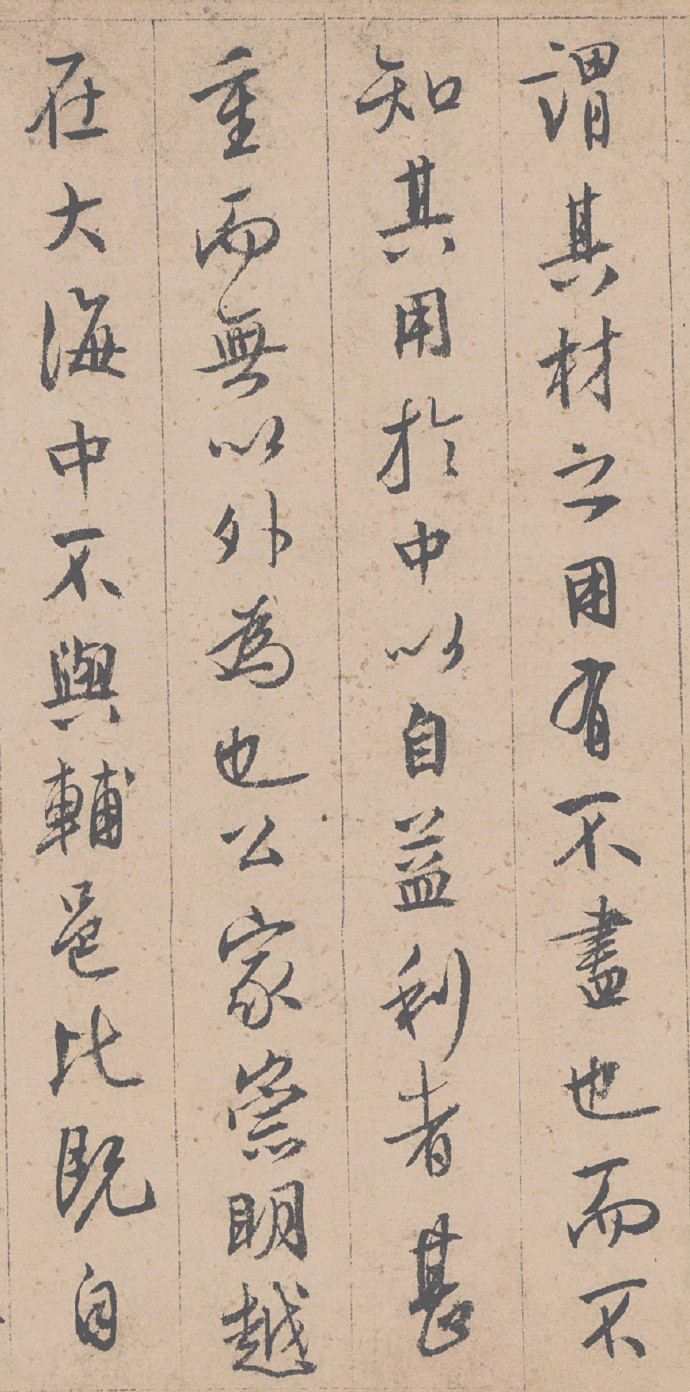 謂其材之用有不盡也而不
知其用於中以自益利者甚
重而無以外為也公家崇明越
在大海中不與輔邑比既自